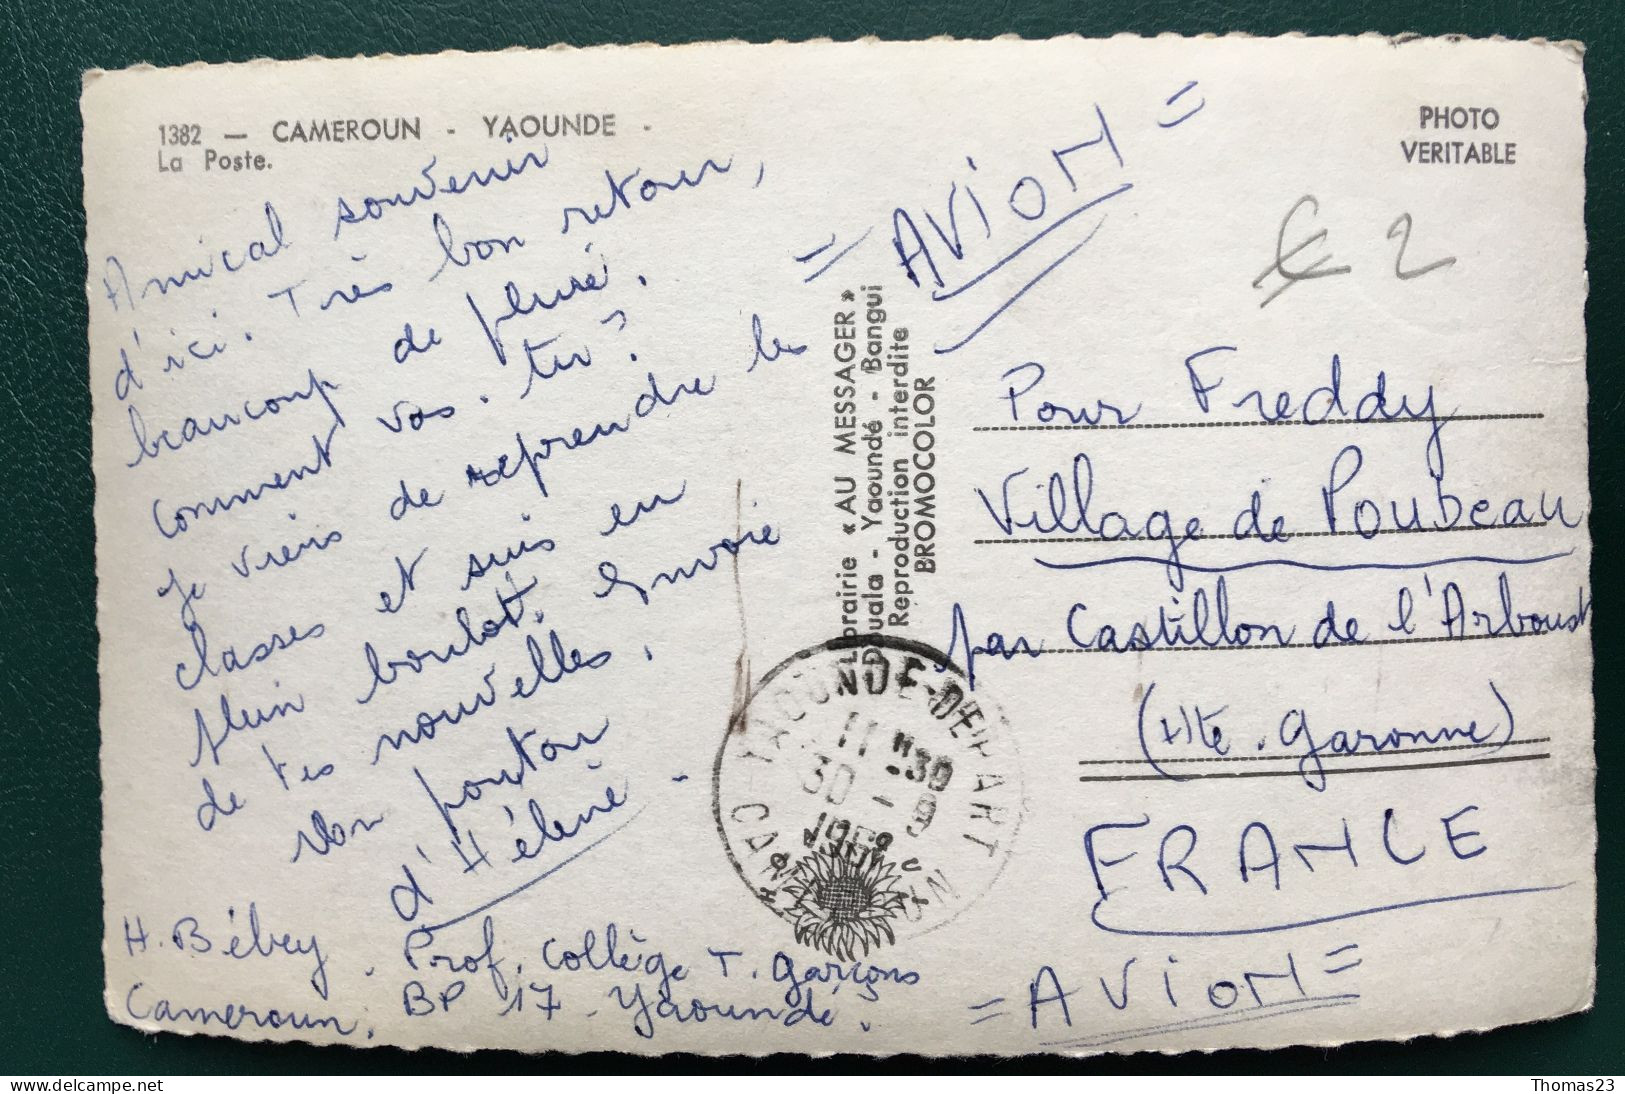 1382 — CAMEROUN - YAOUNDE -
La Poste.
Amical souvenir
d'ici. Très bon retour,
beaucoup de pluie.
Comment vas-tu?
Je viens de reprendre les
classes et suis en
plein boulot. Envoie
de tes nouvelles.
d'Hélène.
H. Bébey. Prof. Collège T. garçons
BP 17 - Yaoundé.
Cameroun.
Librairie « AU MESSAGER »
Douala - Yaoundé - Bangui
Reproduction interdite
BROMOCOLOR
= AVION =
PHOTO
VERITABLE
€ 2
Pour Freddy
Village de Poubeau
par Castillon de l'Arboust
(Hte. Garonne)
FRANCE
= AVION =
YAOUNDE-DEPART
11 H30
30 - 9
Thomas23